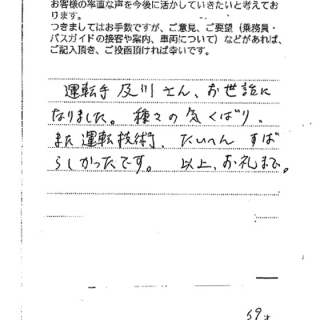 お客様の率直な声を今後に活かしていきたいと考えてお
ります。
つきましてはお手数ですが、ご意見、ご要望（乗務員・
バスガイドの接客や案内、車両について）などがあれば、
ご記入頂き、ご投函頂ければ幸いです。
運転手及川さん、お世話に
なりました。種々の気くばり、
また運転技術、たいへんすば
らしかったです。以上、お礼まで。
59才